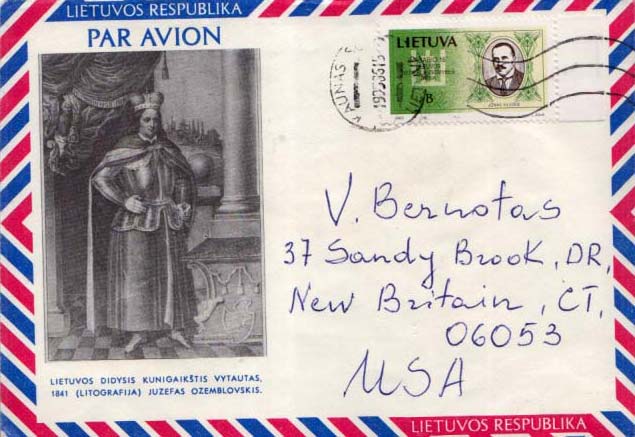 LIETUVOS RESPUBLIKA
PAR AVION
LIETUVA
KAUNAS
B
V. Bernotas
37 Sandy Brook, DR,
New Britain, CT,
06053
USA
LIETUVOS DIDYSIS KUNIGAIKŠTIS VYTAUTAS,
1841 (LITOGRAFIJA) JUZEFAS OZEMBLOVSKIS.
LIETUVOS RESPUBLIKA